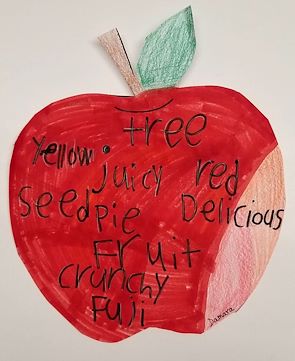 Tree
Yellow.
Juicy red
Seed Pie Delicious
Fruit
Crunchy
Fuji
Damara